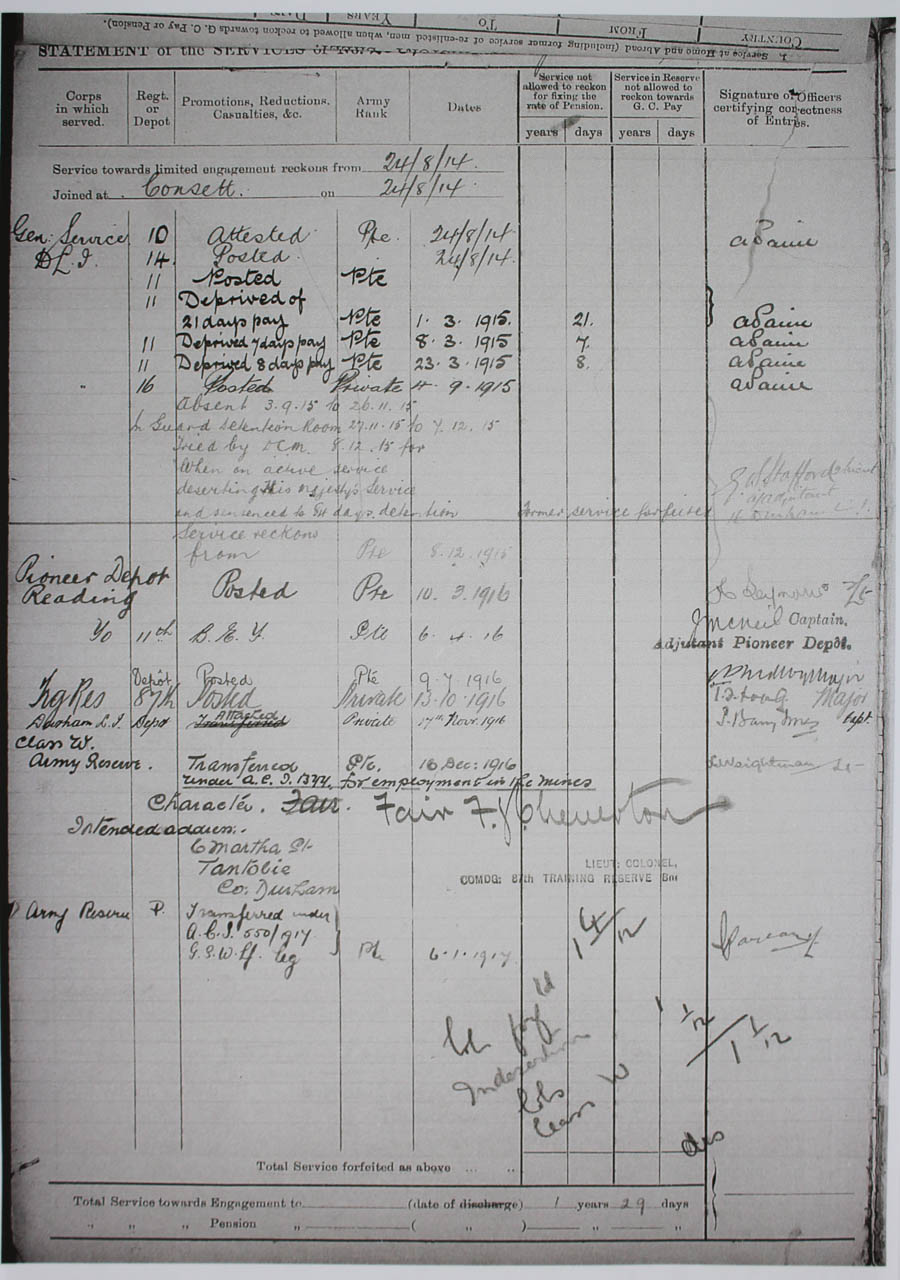 COUNTRY FROM TO YEARS DAYS
1. Service at Home and Abroad (including former service of re-enlisted men, when allowed to reckon towards G. C. Pay or Pension).
STATEMENT of the SERVICES
Corps in which served. Regt. or Depot Promotions, Reductions, Casualties, &c. Army Rank Dates Service not allowed to reckon for fixing the rate of Pension. Service in Reserve not allowed to reckon towards G. C. Pay Signature of Officers certifying correctness of Entries.
years days years days
Service towards limited engagement reckons from 24/8/14.
Joined at Consett. on 24/8/14.
Gen: Service 10 Attested Pte. 24/8/14
D.L.I. 14. Posted. 24/8/14.
11 Posted Pte
11 Deprived of
21 days pay Pte 1. 3. 1915. 21.
11 Deprived 7 days pay Pte 8. 3. 1915 7.
11 Deprived 8 days pay Pte 23. 3. 1915 8.
" 16 Posted Private 4. 9. 1915
Absent 3.9.15 to 26.11.15
In Guard Detention Room 27.11.15 to 7.12.15
Tried by DCM. 8.12.15 for
When on active service
deserting His Majesty's Service
and sentenced to days detention former service forfeited
Service reckons
from Pte 8.12.1915
Pioneer Depot
Reading Posted Pte 10. 3. 1916
11th B.E.F. Pte 6. 4. 16
McNeil Captain.
Adjutant Pioneer Depôt.
Depôt Posted Pte 9.7.1916 Major
Trg Res 87th Posted Private 13.10.1916 Major
Attached
Durham L.I. Depot Transferred Private 17th Nov. 1916 Capt
Class W.
Army Reserve. Transferred Pte. 16 Dec: 1916
under A.C.I. 1344. for employment in the mines
Character. Fair. Fair
Intended address.
6 Martha St
Tantobie
Co. Durham
LIEUT: COLONEL,
COMDG: 87th TRAINING RESERVE Bn
Army Reserve P. Transferred under
A.C.I. 550/1917
G.S.W. Lf. leg Pte 6.1.1917
1 4/12
1 1/12
1 1/12
Class W
Total Service forfeited as above ... ..
Total Service towards Engagement to (date of discharge) 1 years 29 days
" " " Pension " ( " ) " "